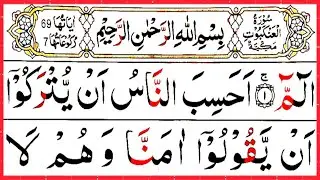 سُوْرَةُ الْعَنْكَبُوْتِ مَكِّيَّةٌ
بِسْمِ اللّٰهِ الرَّحْمٰنِ الرَّحِيْمِ
اٰيَاتُهَا 69
رُكُوْعَاتُهَا 7
الٓمّٓ ۚ ﴿۱﴾ اَحَسِبَ النَّاسُ اَنْ يُّتْرَكُوْۤا
اَنْ يَّقُوْلُوْۤا اٰمَنَّا وَهُمْ لَا